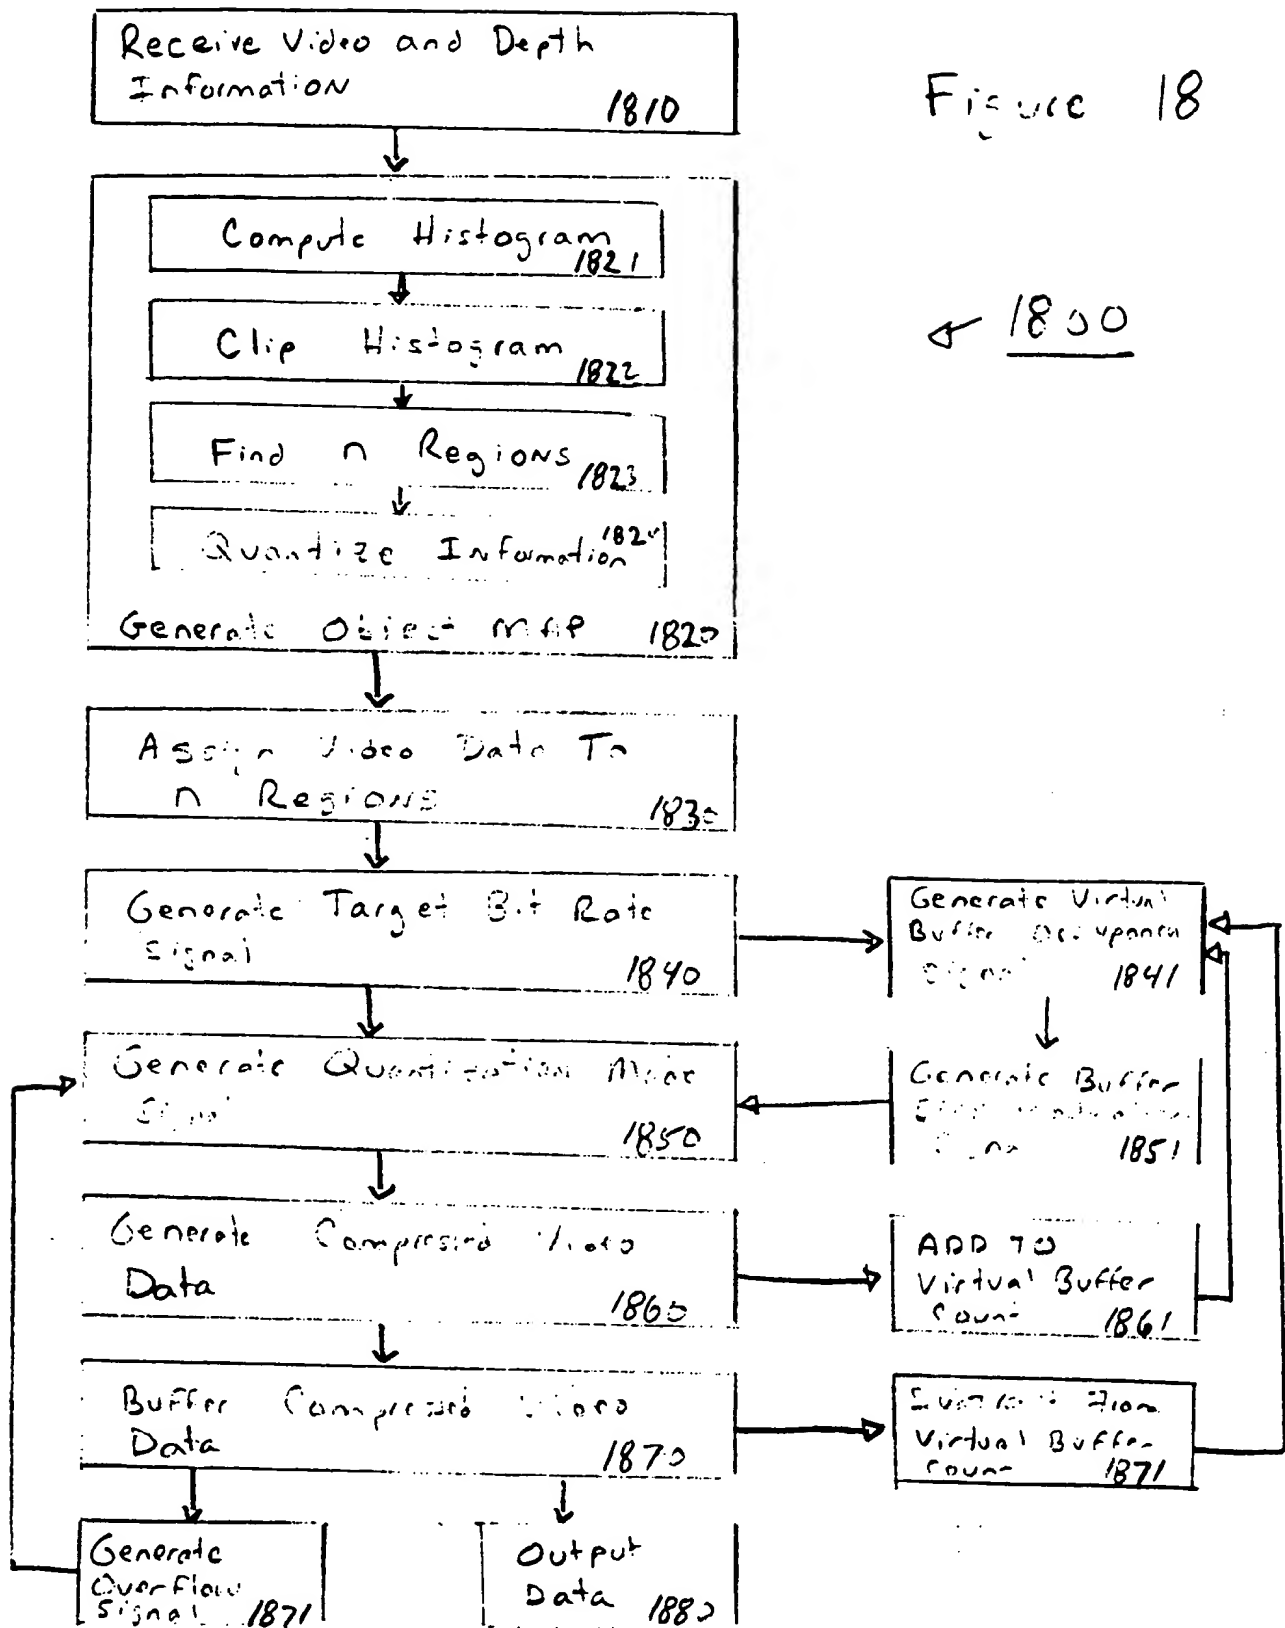 Receive Video and Depth
Information
1810
Figure 18
Compute Histogram
1821
1800
Clip Histogram
1822
Find n Regions
1823
Quantize Information
Generate Object MAP 1820
Assign Video Data To
n Regions
1830
Generate Target Bit Rate
Signal
1840
Generate Virtual
Buffer Occupancy
Signal 1841
Generate Quantization
Signal
1850
Generate Buffer
Signal 1851
Generate Compressed Video
Data
1860
ADD TO
Virtual Buffer
Count 1861
Buffer Compressed Video
Data
1870
Subtract From
Virtual Buffer
Count 1871
Generate
Overflow
Signal 1871
Output
Data 1880